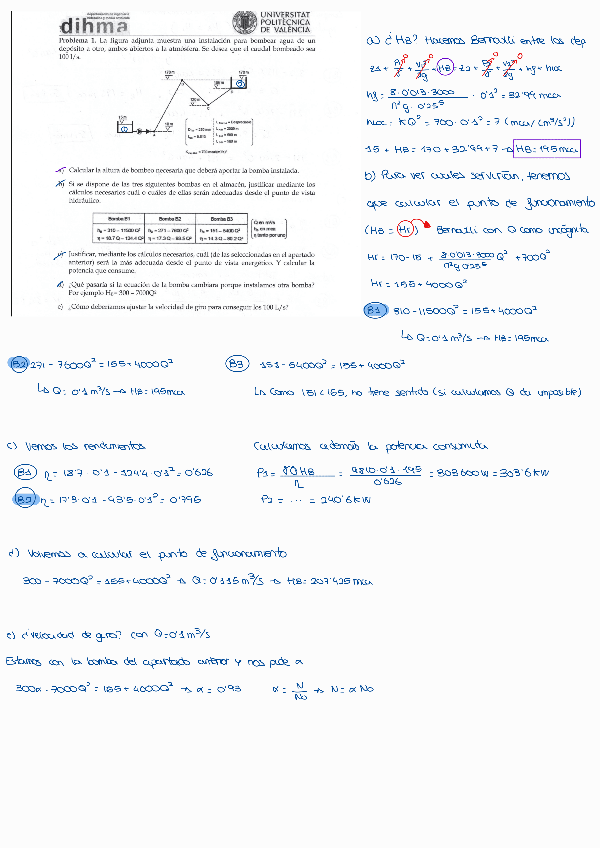 Departamento de Ingeniería
dihma
UNIVERSITAT
POLITÈCNICA
DE VALÈNCIA
Problema 1. La figura adjunta muestra una instalación para bombear agua de un
depósito a otro, ambos abiertos a la atmósfera. Se desea que el caudal bombeado sea
100 l/s.
a) Calcular la altura de bombeo necesaria que deberá aportar la bomba instalada.
b) Si se dispone de las tres siguientes bombas en el almacén, justificar mediante los
cálculos necesarios cuál o cuáles de ellas serán adecuadas desde el punto de vista
hidráulico.
Bomba B1 Bomba B2 Bomba B3
c) Justificar, mediante los cálculos necesarios, cuál (de las seleccionadas en el apartado
anterior) será la más adecuada desde el punto de vista energético. Y calcular la
potencia que consume.
d) ¿Qué pasaría si la ecuación de la bomba cambiara porque instalamos otra bomba?
Por ejemplo Hb= 300 – 7000Q²
e) ¿Cómo deberíamos ajustar la velocidad de giro para conseguir los 100 L/s?
a) ¿HB? Hacemos Bernoulli entre los dep
hf = 8·0'013·3000 / π²g·0'25⁵ · 0'1² = 32'99 mca
hloc = KQ² = 700·0'1² = 7 (mca/(m³/s)²)
15 + HB = 170 + 32'99 + 7 → HB = 195 mca
b) Para ver cuales servirían, tenemos
que calcular el punto de funcionamiento
(HB = Hr) Bernoulli con Q como incógnita
Hr = 170-15 + 8·0'013·3000 / π²g 0'25⁵ Q² + 700Q²
Hr = 155 + 4000Q²
B1 310 - 11500Q² = 155 + 4000Q²
↳ Q = 0'1 m³/s → HB = 195 mca
B2 271 - 7600Q² = 155 + 4000Q²
↳ Q = 0'1 m³/s → HB = 195 mca
B3 151 - 5400Q² = 155 + 4000Q²
↳ Como 151 < 155, no tiene sentido (si calculamos Q da imposible)
c) Vemos los rendimientos
B1 η = 18'7·0'1 - 124'4·0'1² = 0'626
B2 η = 17'3·0'1 - 93'5·0'1² = 0'795
Calculamos además la potencia consumida
P1 = γQHB / η = 9810·0'1·195 / 0'626 = 303600W = 303'6 kW
P2 = ··· = 240'6 kW
d) Volvemos a calcular el punto de funcionamiento
300 - 7000Q² = 155 + 4000Q² → Q = 0'115 m³/s → HB = 207'425 mca
e) ¿Velocidad de giro? con Q = 0'1 m³/s
Estamos con la bomba del apartado anterior y nos pide α
300α - 7000Q² = 155 + 4000Q² → α = 0'93 α = N / No → N = α No